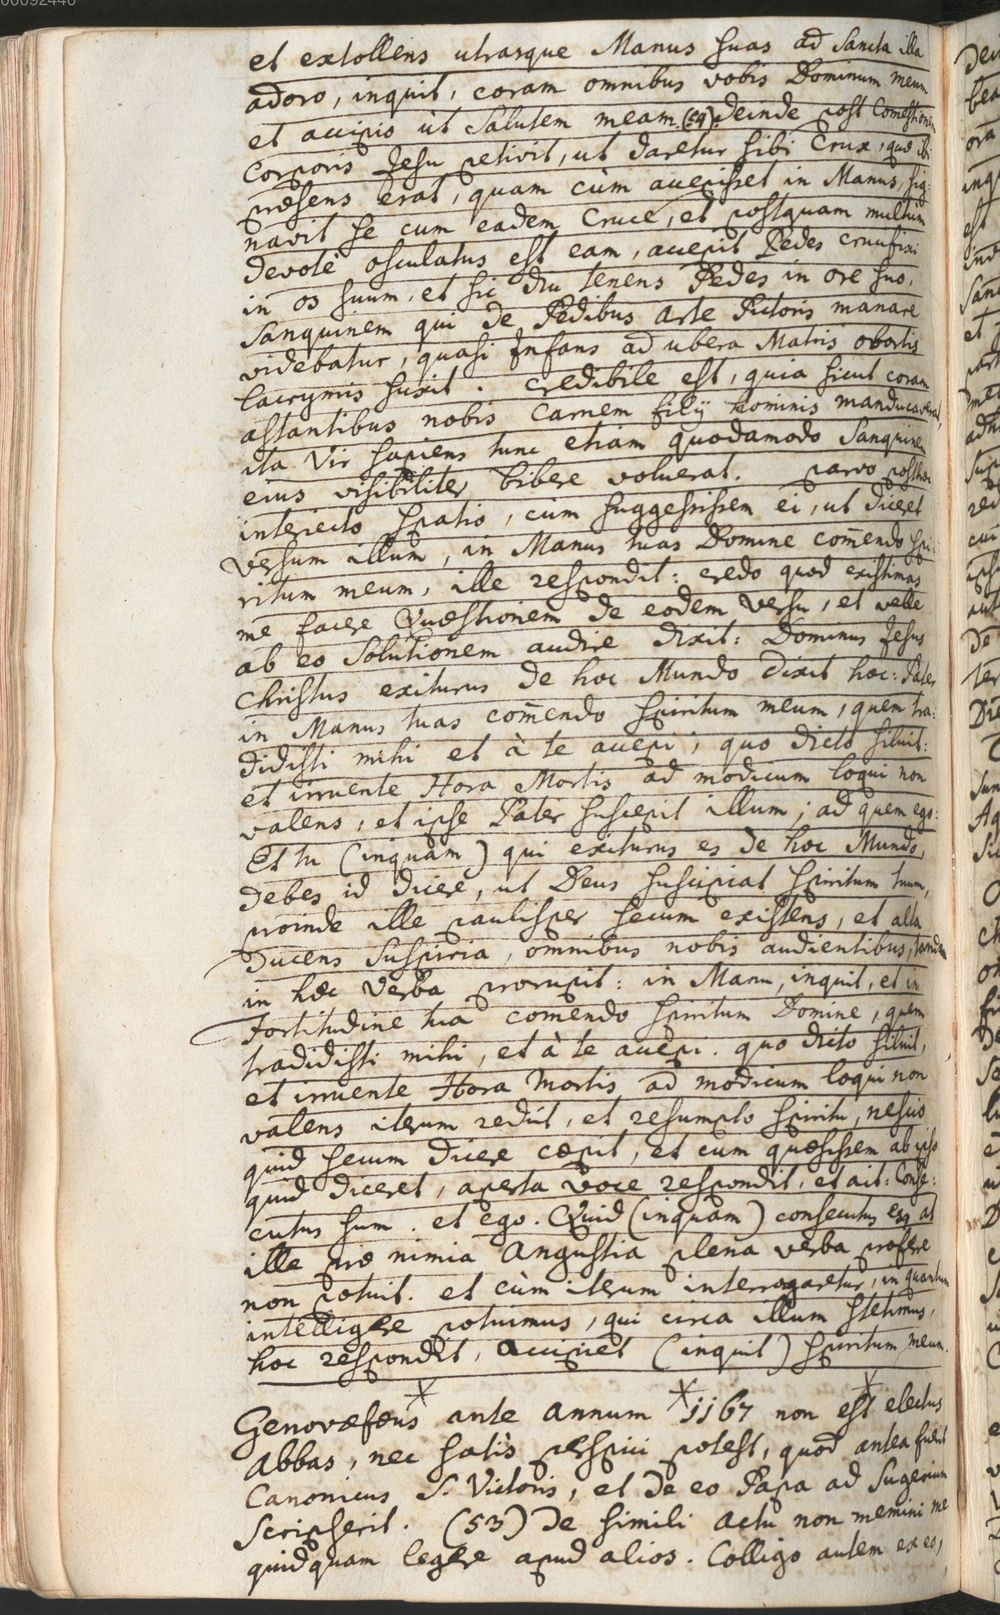 00092440
et extollens utrasque Manus suas ad Sancta illa
adoro, inquit, coram omnibus vobis Dominum meum
et accipio ut Salutem meam. (54) Deinde post Comestionem
Corporis Jesu petivit, ut daretur sibi Crux, quæ ibi
præsens erat, quam cùm accepisset in Manus, sig:
navit se cum eadem Cruce, et postquam multùm
devotè osculatus est eam, accepit Pedes crucifixi
in os suum, et sic diu tenens Pedes in ore suo,
Sanguinem qui de Pedibus Arte Pictoris manare
videbatur, quasi Infans ad ubera Matris obortis
lacrymis suxit. Credibile est, quia sicut coram
astantibus nobis Carnem filij hominis manducaverat,
ita Vir sapiens tunc etiam quodamodo Sanguinem
eius visibiliter bibere voluerat. parvo posthæc
interiecto spatio, cùm suggessissem ei, ut diceret
versum illum, in Manus tuas Domine com̄endo spi:
ritum meum, ille respondit: credo quod existimas
me facere Quæstionem de eodem versu, et velle
ab eo Solutionem audire dixit: Dominus Jesus
Christus exiturus de hoc Mundo dixit hoc: Pater
in Manus tuas com̄endo Spiritum meum, quem tra:
didisti mihi et à te accepi; quo dicto siluit:
et irruente Hora Mortis ad modicum loqui non
valens, et ipse Pater suscepit illum; ad quem ego:
Et tu (inquam) qui exiturus es de hoc Mundo,
debes id dicere, ut Deus suscipiat Spiritum tuum,
proinde ille paulisper secum existens, et alta
ducens suspiria, omnibus nobis audientibus, tandem
in hæc Verba prorupit: in Manu, inquit, et in
fortitudine tua comendo Spiritum Domine, quem
tradidisti mihi, et à te accepi. quo dicto siluit,
et irruente Hora Mortis ad modicum loqui non
valens iterum rediit, et resumpto Spiritu, nescio
quid secum dicere cæpit, et cum quæsissem ab ipso
quid diceret, aperta voce respondit, et ait: Conse:
cutus sum. et ego. Quid (inquam) consecutus es, at
ille præ nimia Angustia plena verba proferre
non potuit. et cùm iterum interrogaretur, in quantum
intelligere potuimus, qui circa illum stetimus,
hoc respondit, Accipiet (inquit) Spiritum meum.
Genovæfæus ante annum 1167 non est electus
Abbas, nec satis perspici potest, quod antea fuerit
Canonicus S. Victoris, et de eo Papa ad Sugerium
Scripserit. (53) De simili actu non memini me
quidquam legere apud alios. Colligo autem ex eo,